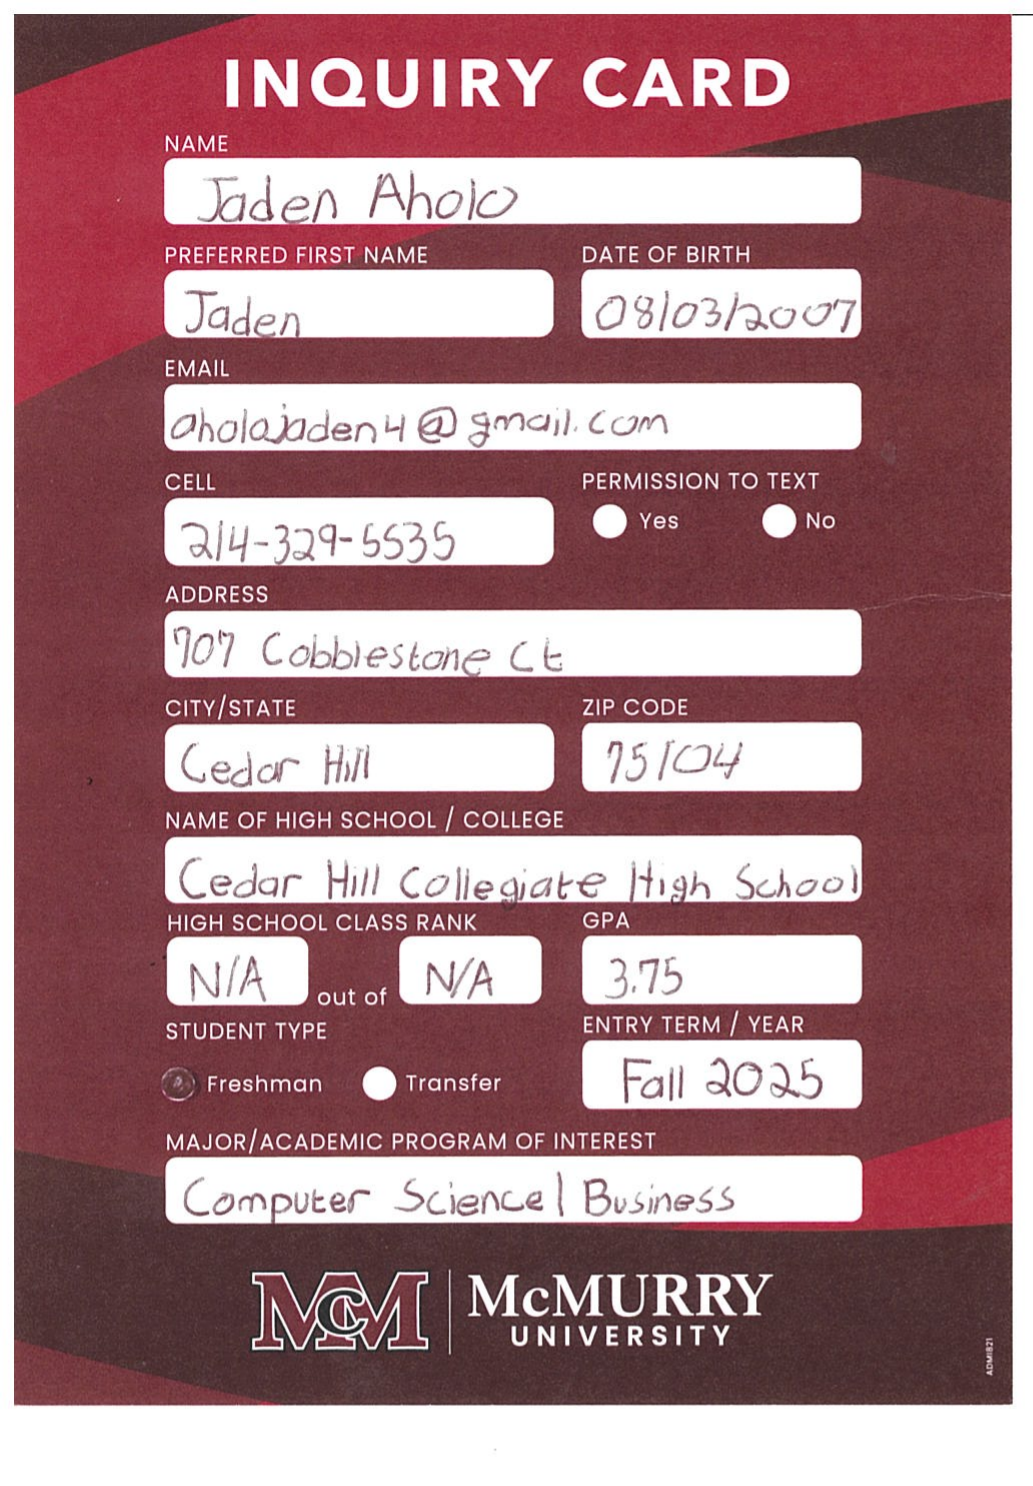 INQUIRY CARD
NAME
Jaden Aholo
PREFERRED FIRST NAME DATE OF BIRTH
Jaden 08/03/2007
EMAIL
aholojaden4@gmail.com
CELL PERMISSION TO TEXT
214-329-5535 Yes No
ADDRESS
707 Cobblestone Ct
CITY/STATE ZIP CODE
Cedar Hill 75104
NAME OF HIGH SCHOOL / COLLEGE
Cedar Hill Collegiate High School
HIGH SCHOOL CLASS RANK GPA
N/A out of N/A 3.75
STUDENT TYPE ENTRY TERM / YEAR
Freshman Transfer Fall 2025
MAJOR/ACADEMIC PROGRAM OF INTEREST
Computer Science | Business
McM McMURRY
UNIVERSITY
ADM1821